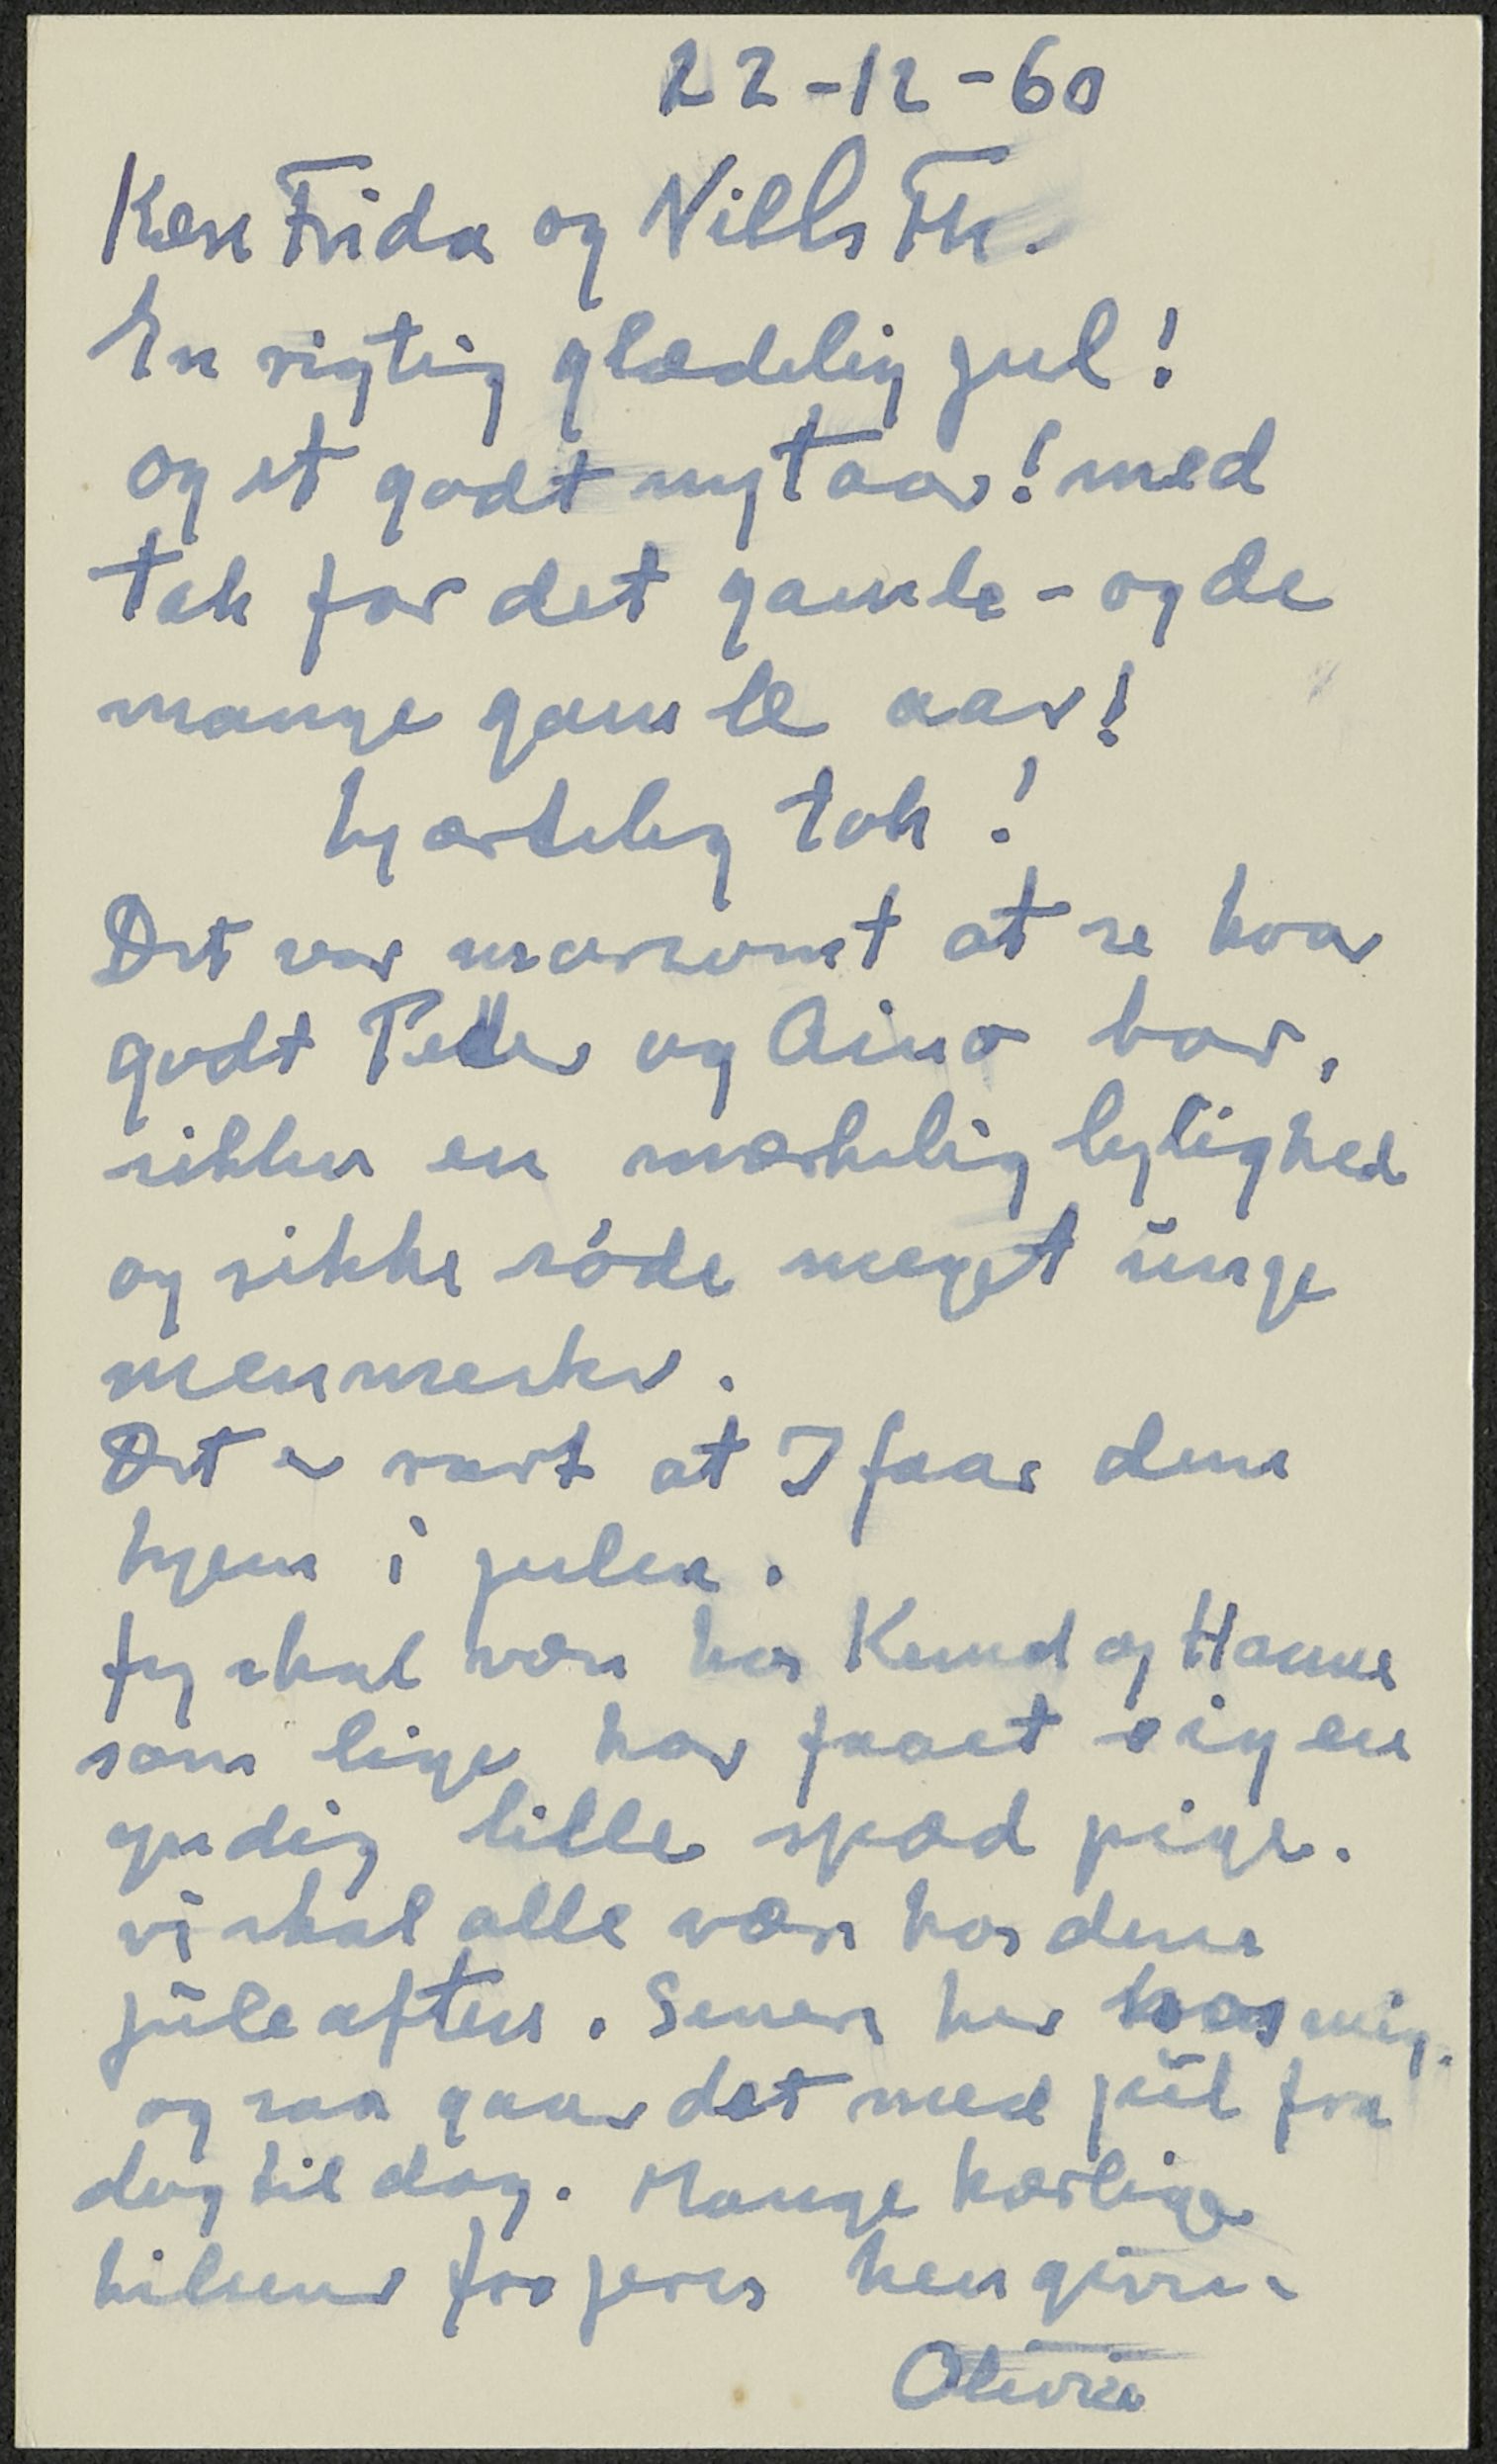 22-12-60
Kære Frida og Niels Th.
En rigtig glædelig jul!
og et godt nytaar! med
tak for det gamle - og de
mange gamle aar!
hjærtelig tak!
Det var morsomt at se hvor
godt Peder og Aino bor,
sikken en mærkelig lejlighed
og sikke søde meget unge
mennesker.
Det er rart at I faar dem
hjem i julen.
Jeg skal være hos Knud og Hanne
som lige har faaet sig en
yndig lille spæd pige.
vi skal alle være hos dem
juleaften. Senere her hos mig.
og saa gaar det med jul fra
dag til dag. Mange kærlige
hilsener fra jeres hengivne
Olivia